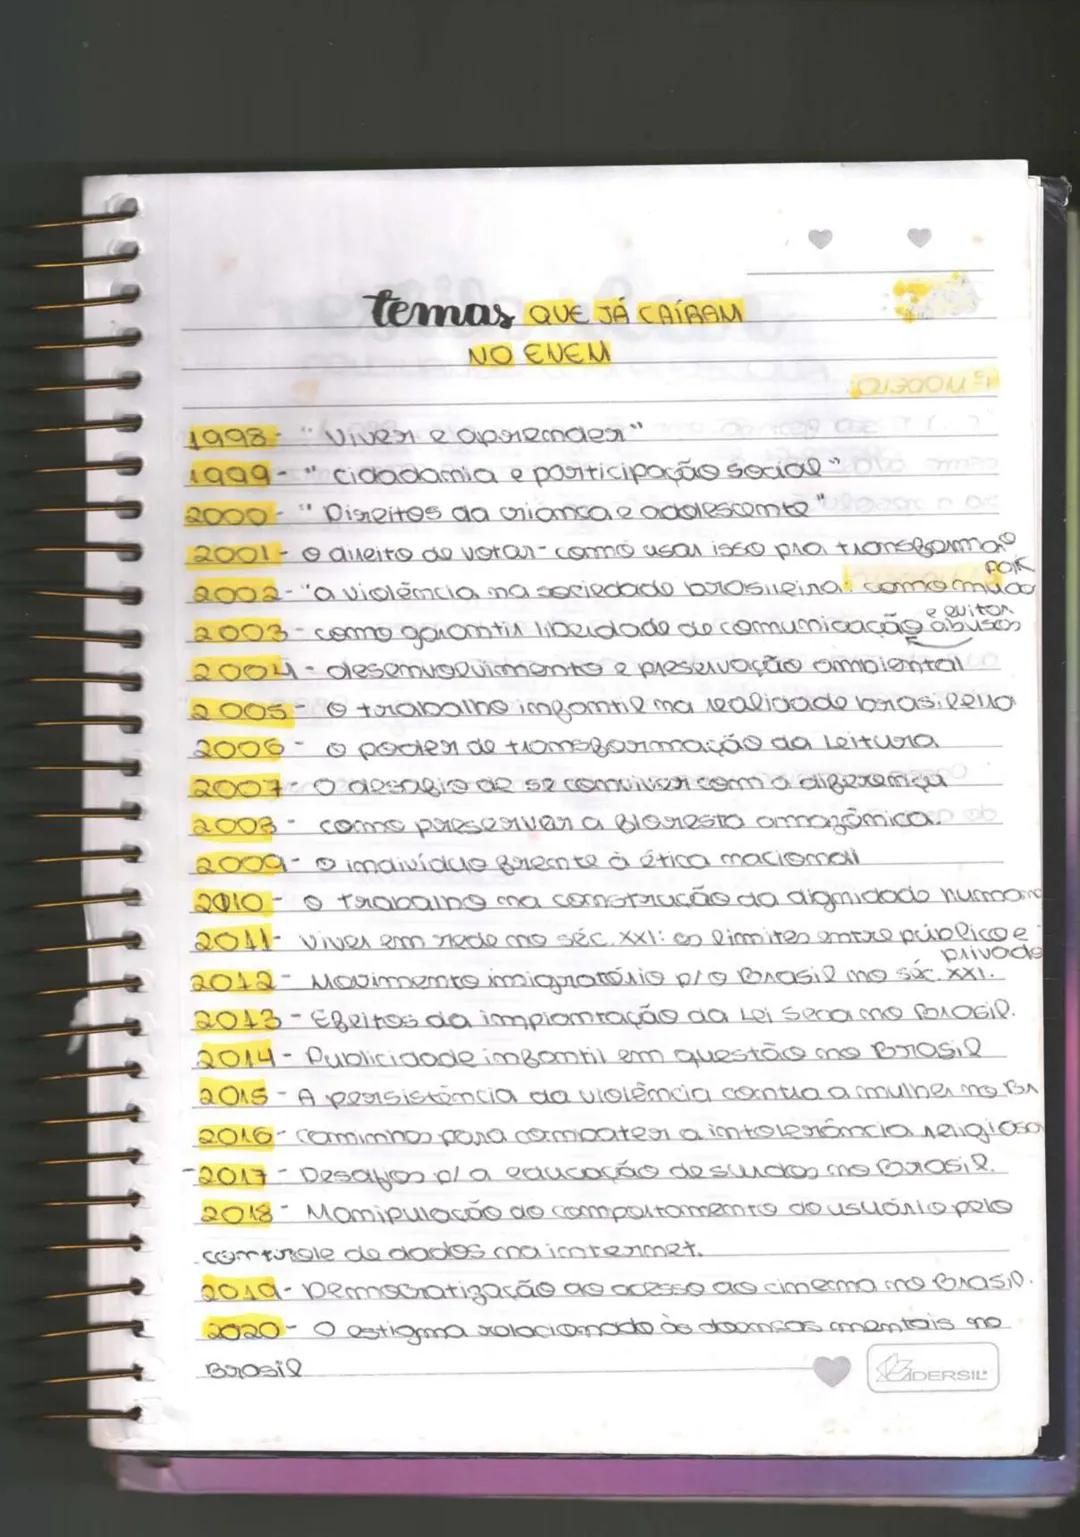 temas QUE JÁ CAÍRAM
NO ENEM
1º MODELO:
1998- "Viver e aprender"
1999- "cidadania e participação social"
2000- "Direitos da criança e adolescente"
2001- o direito de votar- como usar isso pra transformação
2002- "a violência na sociedade brasileira: como mudar
2003- como garantir liberdade de comunicação e evitar abusos
2004- desenvolvimento e preservação ambiental
2005- O trabalho infantil na realidade brasileira
2006- o poder de transformação da Leitura
2007- O desafio de se conviver com a diferença
2008- como preservar a floresta amazônica.
2009- o indivíduo frente à ética nacional
2010- o trabalho na construção da dignidade humana
2011- Viver em rede no séc. XXI: os limites entre público e privado
2012- Movimento imigratório p/o Brasil no séc. XXI.
2013- Efeitos da implantação da Lei Seca no Brasil.
2014- Publicidade infantil em questão no Brasil
2015- A persistência da violência contra a mulher no BR
2016- caminhos para combater a intolerância religiosa
-2017- Desafios p/ a educação de surdos no Brasil.
2018- Manipulação do comportamento do usuário pelo
controle de dados na internet.
2019- Democratização ao acesso ao cinema no Brasil.
2020- O estigma relacionado às doenças mentais no
Brasil